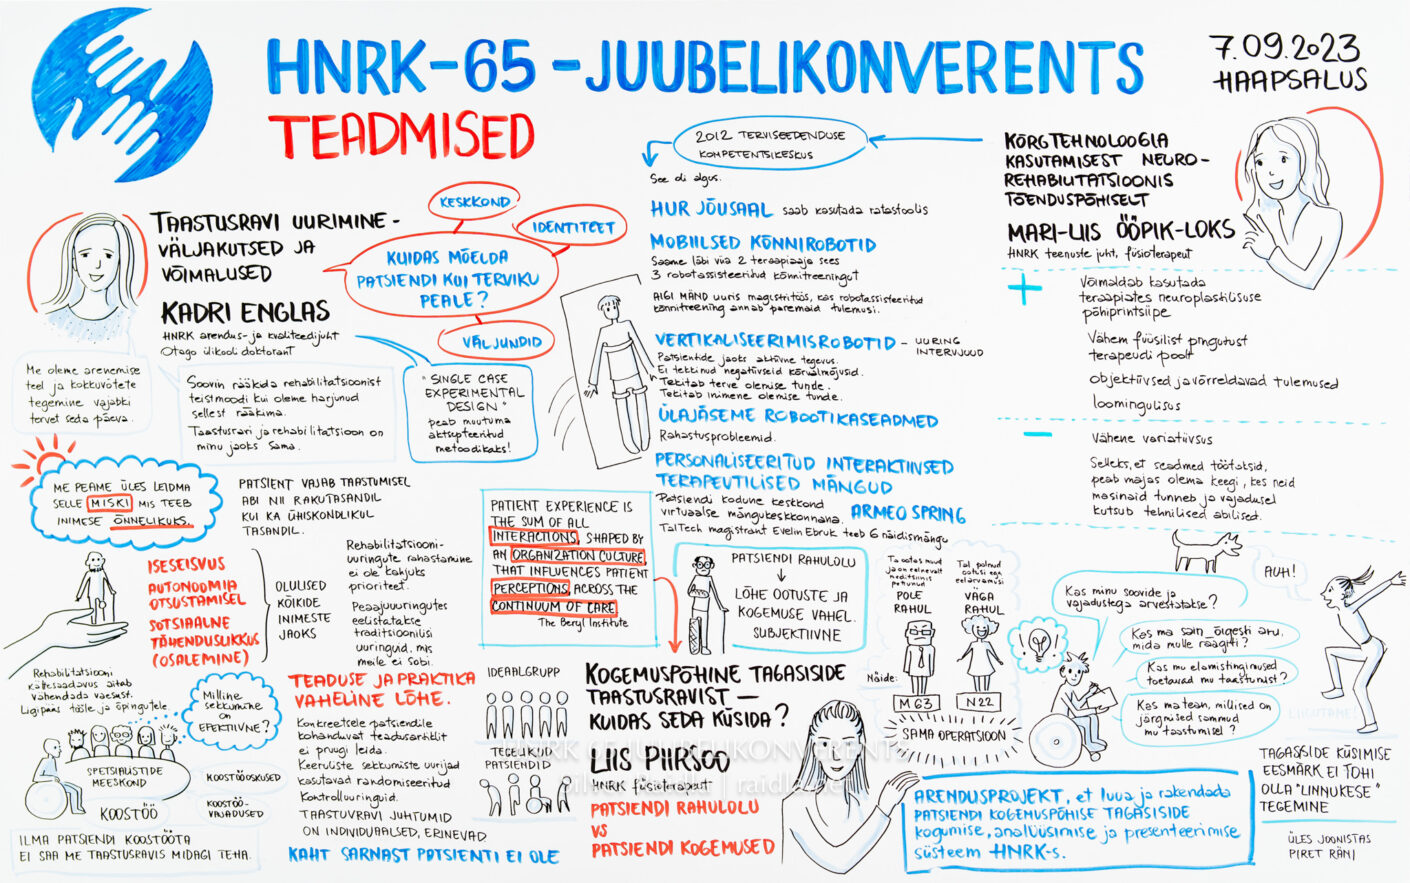 HNRK-65-JUUBELIKONVERENTS
TEADMISED
7.09.2023
HAAPSALUS
TAASTUSRAVI UURIMINE -
VÄLJAKUTSED JA
VÕIMALUSED
KADRI ENGLAS
HNRK arendus- ja kvaliteedijuht
Otago ülikooli doktorant
KESKKOND
IDENTITEET
KUIDAS MÕELDA
PATSIENDI KUI TERVIKU
PEALE?
VÄLJUNDID
Me oleme arenemise
teel ja kokkuvõtete
tegemine vajabki
tervet seda päeva.
Soovin rääkida rehabilitatsioonist
teistmoodi kui oleme harjunud
sellest rääkima.
Taastusravi ja rehabilitatsioon on
minu jaoks sama.
"SINGLE CASE
EXPERIMENTAL
DESIGN"
peab muutuma
aktsepteeritud
metoodikaks!
ME PEAME ÜLES LEIDMA
SELLE MISKI MIS TEEB
INIMESE ÕNNELIKUKS.
PATSIENT VAJAB TAASTUMISEL
ABI NII RAKUTASANDIL
KUI KA ÜHISKONDLIKUL
TASANDIL.
ISESEISVUS
AUTONOOMIA
OTSUSTAMISEL
SOTSIAALNE
TÄHENDUSLIKKUS
(OSALEMINE)
OLULISED
KÕIKIDE
INIMESTE
JAOKS
Rehabilitatsiooni-
uuringute rahastamine
ei ole kahjuks
prioriteet.
Peaajuuuringutes
eelistatakse
traditsioonilisi
uuringuid, mis
meile ei sobi.
Rehabilitatsiooni
kättesaadavus aitab
vähendada vaesust.
Ligipääs tööle ja õpingutele.
Milline
sekkumine
on
EFEKTIIVNE?
SPETSIALISTIDE
MEESKOND
KOOSTÖÖ
KOOSTÖÖOSKUSED
KOOSTÖÖ-
VAJADUSED
ILMA PATSIENDI KOOSTÖÖTA
EI SAA ME TAASTUSRAVIS MIDAGI TEHA.
TEADUSE JA PRAKTIKA
VAHELINE LÕHE.
Konkreetsele patsiendile
kohandatud teadusartiklit
ei pruugi leida.
Keeruliste sekkumiste uurijad
kasutavad randomiseeritud
kontrolluuringuid.
TAASTURAVI JUHTUMID
ON INDIVIDUAALSED, ERINEVAD
KAHT SARNAST PATSIENTI EI OLE
IDEAALGRUPP
TEGELIKUD
PATSIENDID
2012 TERVISEEDENDUSE
KOMPETENTSIKESKUS
See oli algus.
HUR JÕUSAAL saab kasutada ratastoolis
MOBIILSED KÕNNIROBOTID
Saame läbi viia 2 teraapiaaja sees
3 robotassisteeritud kõnnitreeningut
AIGI MÄND uuris magistritöös, kas robotassisteeritud
kõnnitreening annab paremaid tulemusi.
VERTIKALISEERIMISROBOTID - UURING
INTERVJUUD
Patsientide jaoks aktiivne tegevus.
Ei tekkinud negatiivseid kõrvalmõjusid.
Tekitab terve olemise tunde.
Tekitab inimene olemise tunde.
ÜLAJÄSEME ROBOOTIKASEADMED
Rahastusprobleemid.
PERSONALISEERITUD INTERAKTIIVSED
TERAPEUTILISED MÄNGUD
Patsiendi kodune keskkond
virtuaalse mängukeskkonnana.
ARMEO SPRING
TalTech magistrant Evelin Ebruk teeb 6 näidismängu
KÕRGTEHNOLOOGIA
KASUTAMISEST NEURO-
REHABILITATSIOONIS
TÕENDUSPÕHISELT
MARI-LIIS ÖÖPIK-LOKS
HNRK teenuste juht, füsioterapeut
+
Võimaldab kasutada
teraapiates neuroplastilisuse
põhiprintsiipe
Vähem füüsilist pingutust
terapeudi poolt
objektiivsed ja võrreldavad tulemused
loomingulisus
-
Vähene variatiivsus
Selleks, et seadmed töötaksid,
peab majas olema keegi, kes neid
masinaid tunneb ja vajadusel
kutsub tehnilised abilised.
PATIENT EXPERIENCE IS
THE SUM OF ALL
INTERACTIONS, SHAPED BY
AN ORGANIZATION CULTURE,
THAT INFLUENCES PATIENT
PERCEPTIONS, ACROSS THE
CONTINUUM OF CARE
The Beryl Institute
PATSIENDI RAHULOLU
LÕHE OOTUSTE JA
KOGEMUSE VAHEL.
SUBJEKTIIVNE
KOGEMUSPÕHINE TAGASISIDE
TAASTUSRAVIST -
KUIDAS SEDA KÜSIDA?
LIIS PIIRSOO
HNRK füsioterapeut
PATSIENDI RAHULOLU
VS
PATSIENDI KOGEMUSED
POLE
RAHUL
VÄGA
RAHUL
Näide:
M63
N22
SAMA OPERATSIOON
AUH!
Kas minu soovide ja
vajadustega arvestatakse?
Kas ma sain õigesti aru,
mida mulle räägiti?
Kas mu elamistingimused
toetavad mu taastumist?
Kas ma tean, millised on
järgmised sammud
mu taastumisel?
LIIGUTAME!
TAGASISIDE KÜSIMISE
EESMÄRK EI TOHI
OLLA "LINNUKESE"
TEGEMINE
ARENDUSPROJEKT, et luua ja rakendada
PATSIENDI KOGEMUSPÕHISE TAGASISIDE
kogumise, analüüsimise ja presenteerimise
süsteem HNRK-s.
ÜLES JOONISTAS
PIRET RÄNI